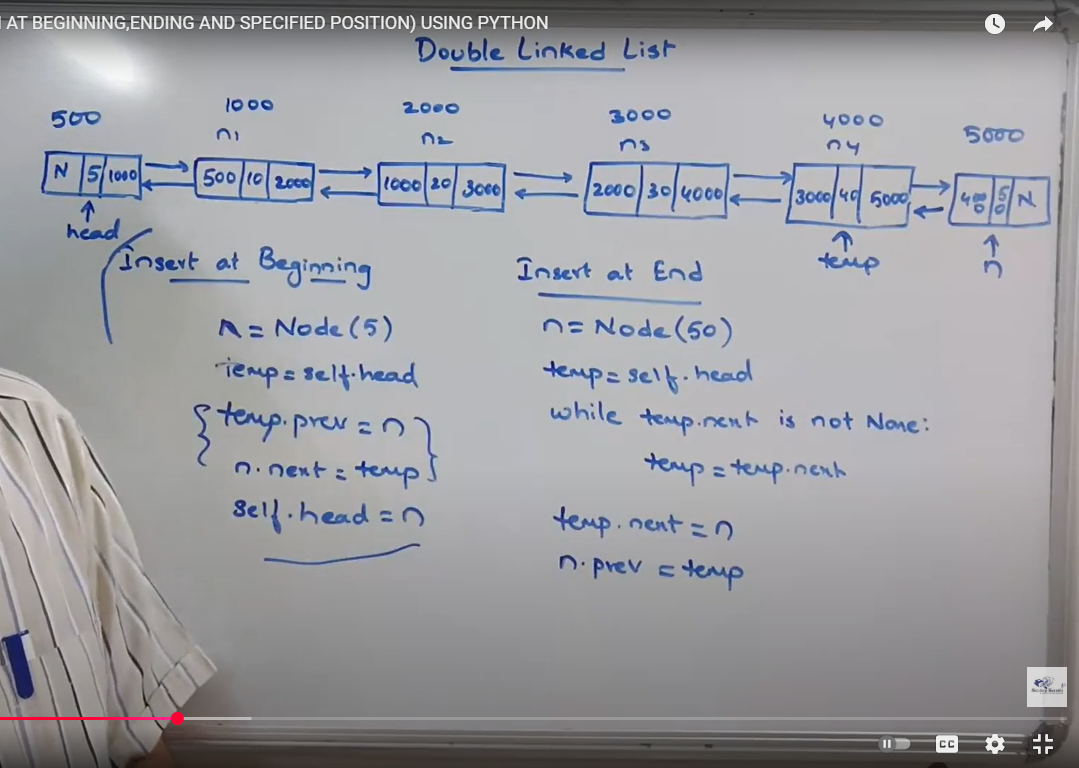 AT BEGINNING,ENDING AND SPECIFIED POSITION) USING PYTHON
Double Linked List
500 1000 2000 3000 4000 5000
n1 n2 n3 n4
N 5 1000 500 10 2000 1000 20 3000 2000 30 4000 3000 40 5000 4000 50 N
head temp n
Insert at Beginning
n = Node(5)
Temp = self.head
temp.prev = n
n.next = temp
self.head = n
Insert at End
n = Node(50)
temp = self.head
while temp.next is not None:
temp = temp.next
temp.next = n
n.prev = temp
CC